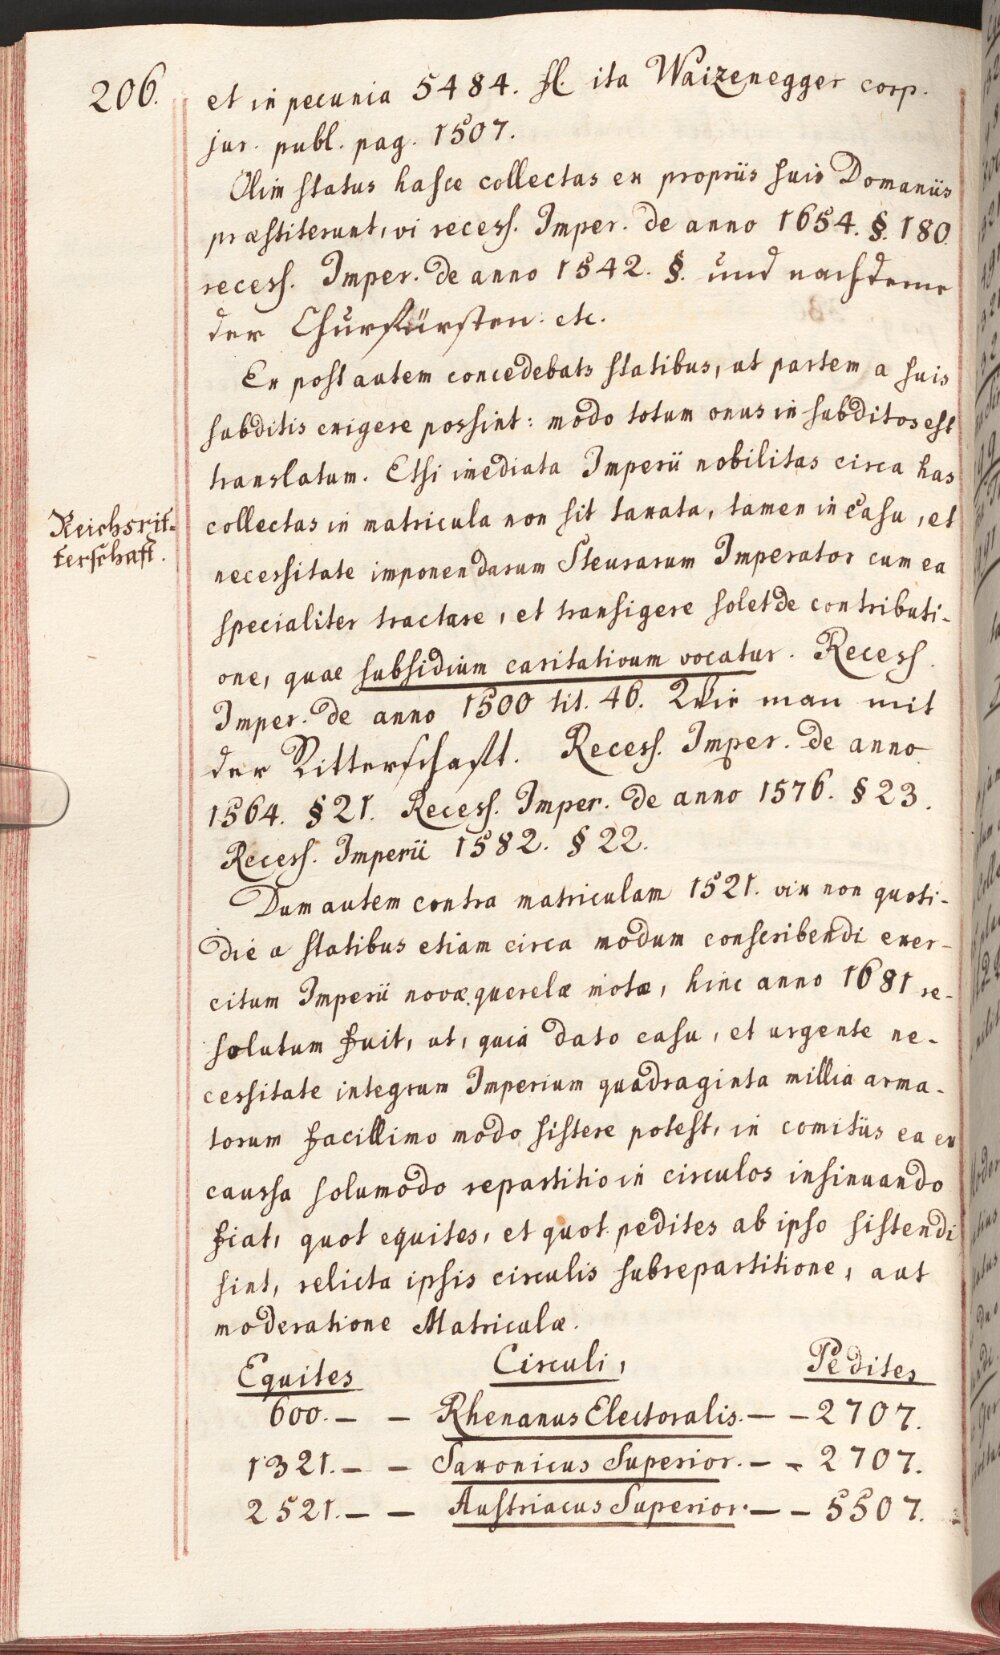 206.
et in pecunia 5484. fl. ita Waizenegger corp.
jur. publ. pag. 1507.
Olim status hasce collectas ex propriis suis Domaniis
præstiterunt, vi recess. Imper. de anno 1654. §. 180
recess. Imper. de anno 1542. §. und nachdeme
der Churfürsten: etc.
Ex post autem concedebats statibus, ut partem a suis
subditis exigere possint: modo totum onus in subditos est
translatum. Etsi imediata Imperii nobilitas circa has
Reichsrit-
terschaft.
collectas in matricula non sit taxata, tamen in casu, et
necessitate imponendarum Steurarum Imperator cum ea
specialiter tractare, et transigere solet de contributi-
one, quae subsidium caritativum vocatur. Recess.
Imper. de anno 1500 tit. 46. Wie man mit
der Ritterschaft. Recess. Imper. de anno
1564. § 21. Recess. Imper. de anno 1576. § 23.
Recess. Imperii 1582. § 22.
Dum autem contra matriculam 1521. vix non quoti-
die a statibus etiam circa modum conscribendi exer-
citum Imperii novæ querelæ motæ, hinc anno 1681 re-
solutum fuit, ut, quia dato casu, et urgente ne-
cessitate integrum Imperium quadraginta millia arma-
torum facillimo modo sistere potest, in comitiis ea ex
caussa solumodo repartitio in circulos insinuando
fiat, quot equites, et quot pedites ab ipso sistendi
sint, relicta ipsis circulis subrepartitione, aut
moderatione Matriculæ.
Equites Circuli, Pedites
600. — — Rhenanus Electoralis. — — 2707.
1321. — — Saxonicus Superior. — — 2707.
2521. — — Austriacus Superior. — — 5507.